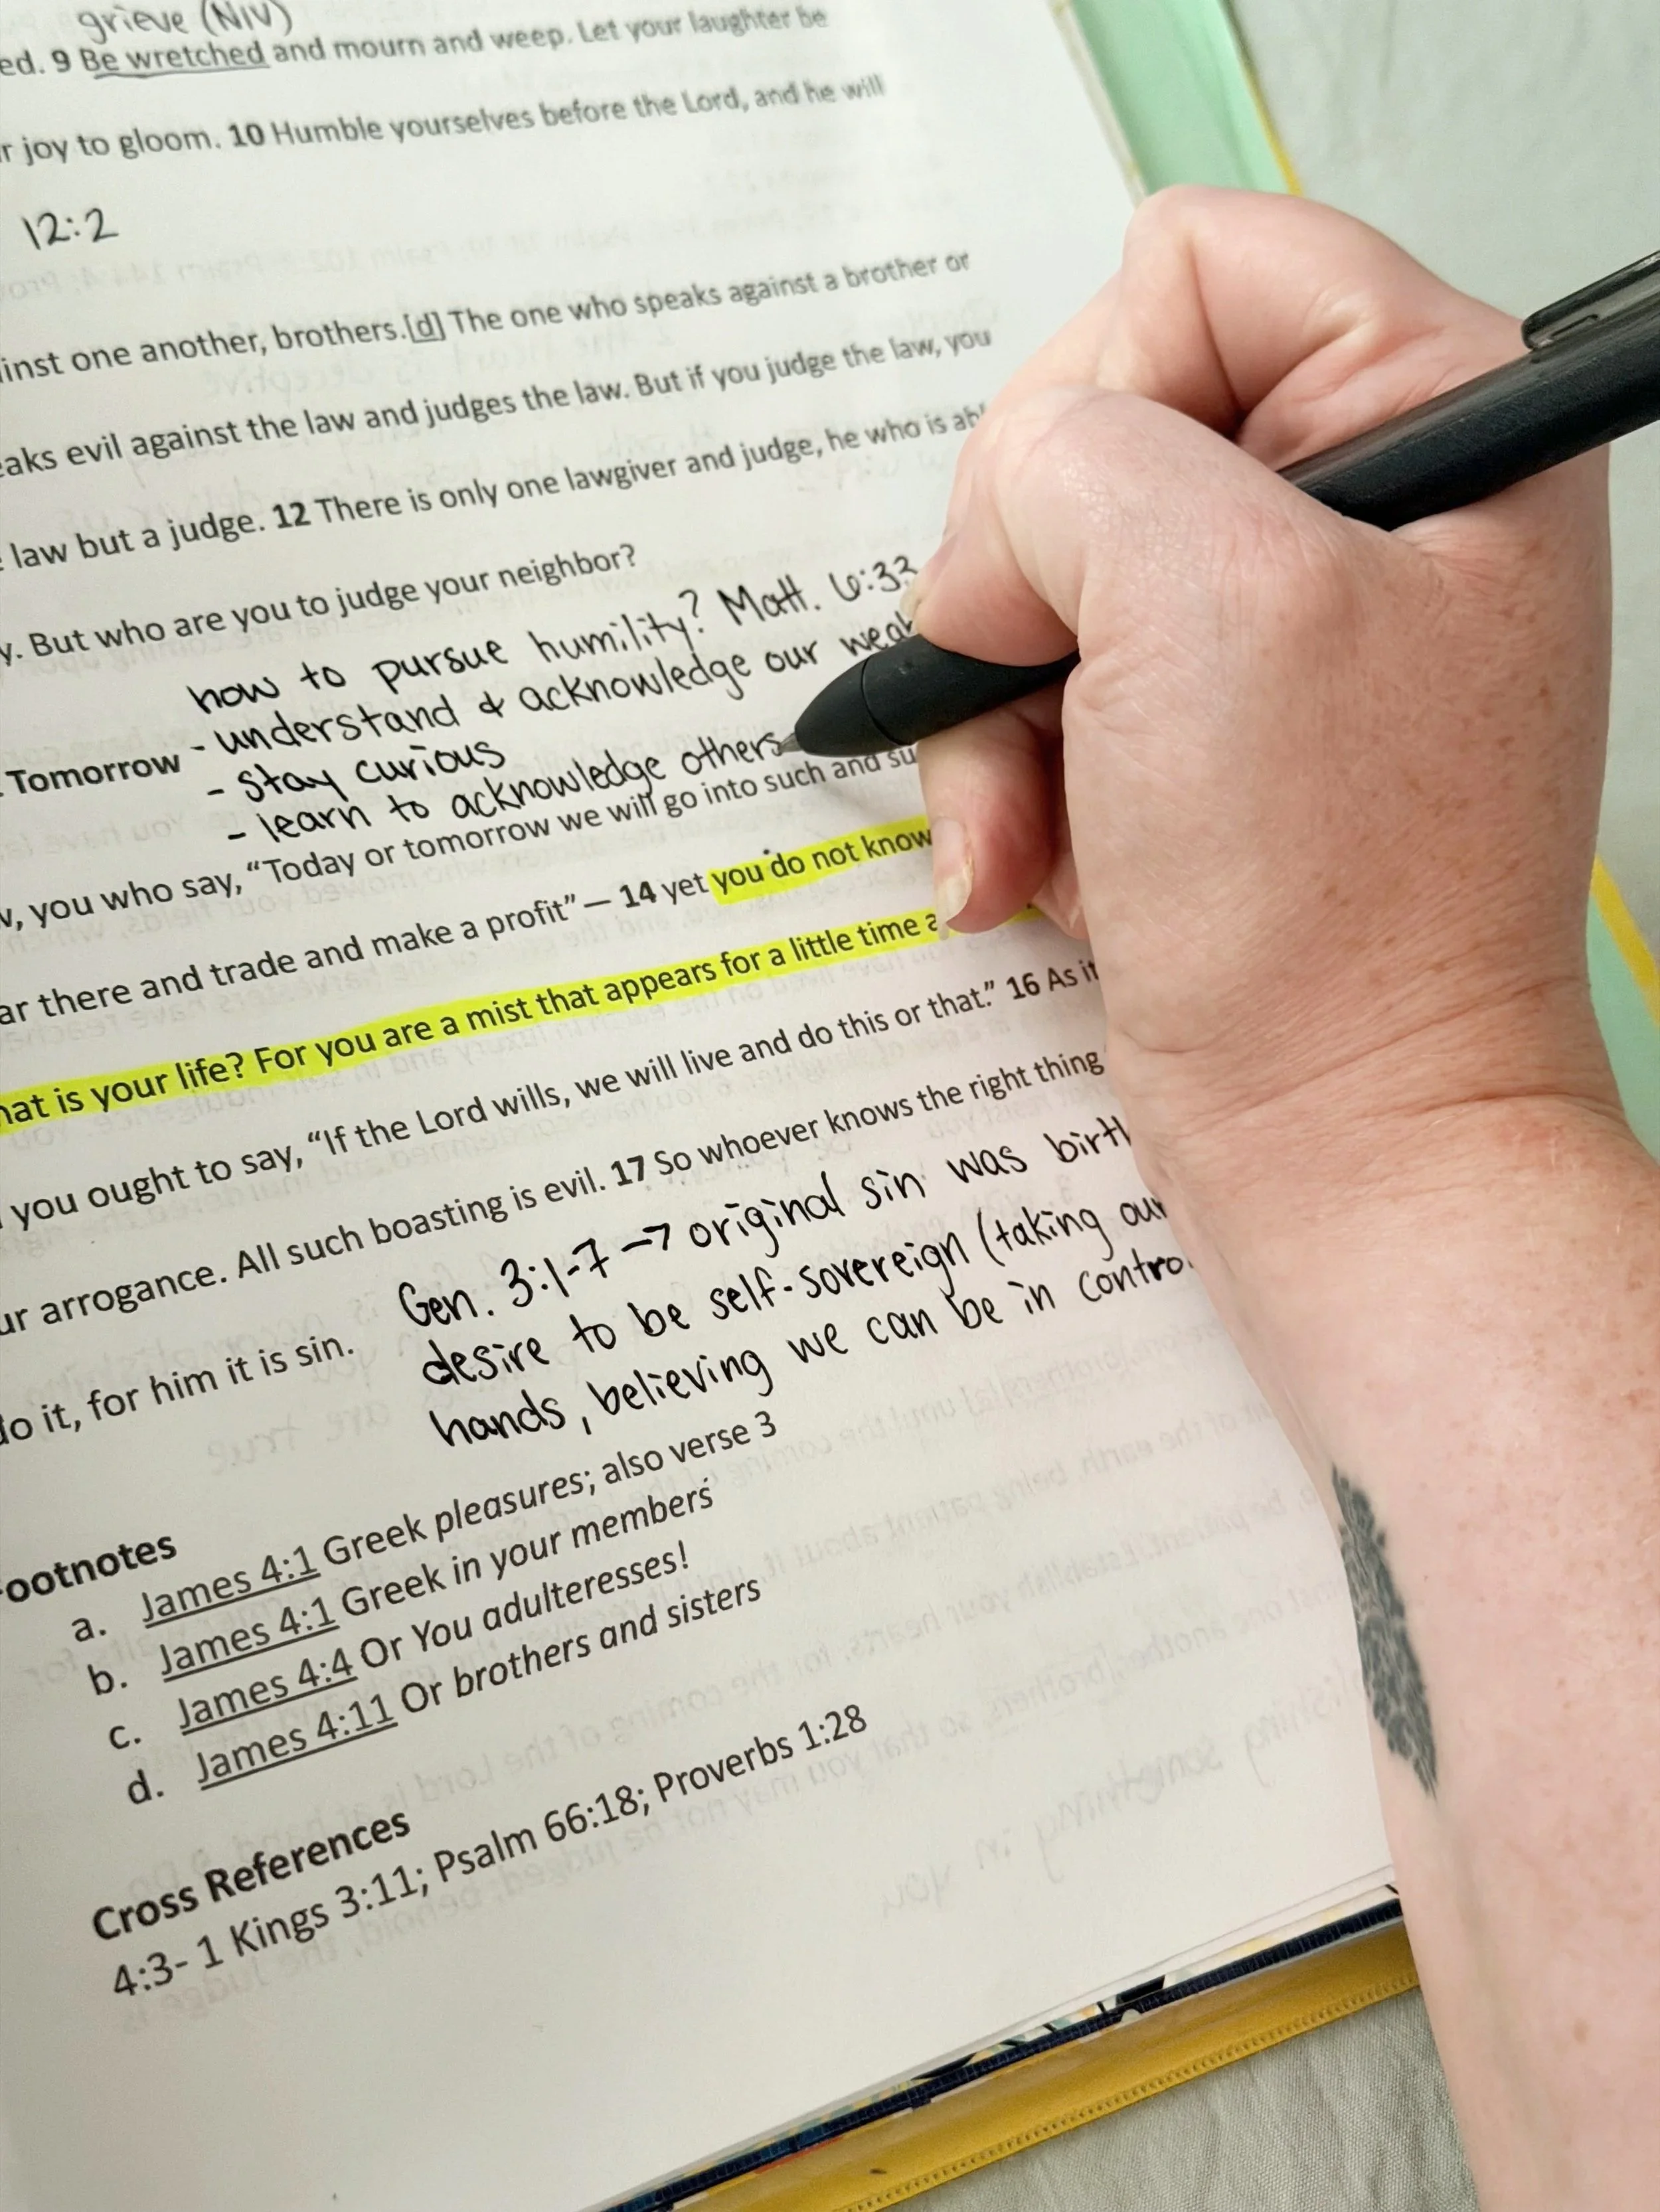 grieve (NIV)
ed. 9 Be wretched and mourn and weep. Let your laughter be
r joy to gloom. 10 Humble yourselves before the Lord, and he will
12:2
inst one another, brothers.[d] The one who speaks against a brother or
eaks evil against the law and judges the law. But if you judge the law, you
law but a judge. 12 There is only one lawgiver and judge, he who is
y. But who are you to judge your neighbor?
how to pursue humility? Matt. 6:33
- understand & acknowledge our
Tomorrow
- stay curious
- learn to acknowledge others
, you who say, “Today or tomorrow we will go into such and su
ar there and trade and make a profit” — 14 yet you do not know
hat is your life? For you are a mist that appears for a little time a
you ought to say, “If the Lord wills, we will live and do this or that.” 16 As it
ur arrogance. All such boasting is evil. 17 So whoever knows the right thing
do it, for him it is sin.
Gen. 3:1-7 → original sin was birth
desire to be self-sovereign (taking our
hands, believing we can be in control
ootnotes
a. James 4:1 Greek pleasures; also verse 3
b. James 4:1 Greek in your members
c. James 4:4 Or You adulteresses!
d. James 4:11 Or brothers and sisters
Cross References
4:3- 1 Kings 3:11; Psalm 66:18; Proverbs 1:28